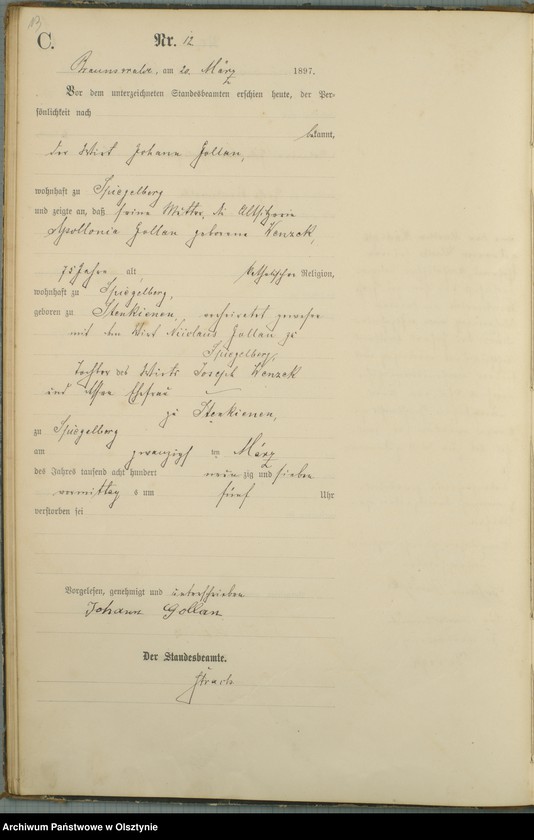 13
C.
Nr. 12
Braunswalde, am 20. März 1897.
Vor dem unterzeichneten Standesbeamten erschien heute, der Per-
sönlichkeit nach
bekannt,
der Wirt Johann Gollan,
wohnhaft zu Spiegelberg
und zeigte an, daß seine Mutter, die Altsitzerin
Apollonia Gollan geborene Wenzek,
75 Jahre alt, katholischer Religion,
wohnhaft zu Spiegelberg,
geboren zu Stenkienen, verheiratet gewesen
mit dem Wirt Nicolaus Gollan zu
Spiegelberg,
Tochter des Wirts Joseph Wenzek
und Ehefrau
zu Stenkienen,
zu Spiegelberg
am zwanzigsten März
des Jahres tausend acht hundert neunzig und sieben
vormittags um fünf Uhr
verstorben sei
Vorgelesen, genehmigt und unterschrieben
Johann Gollan
Der Standesbeamte.
Archiwum Państwowe w Olsztynie